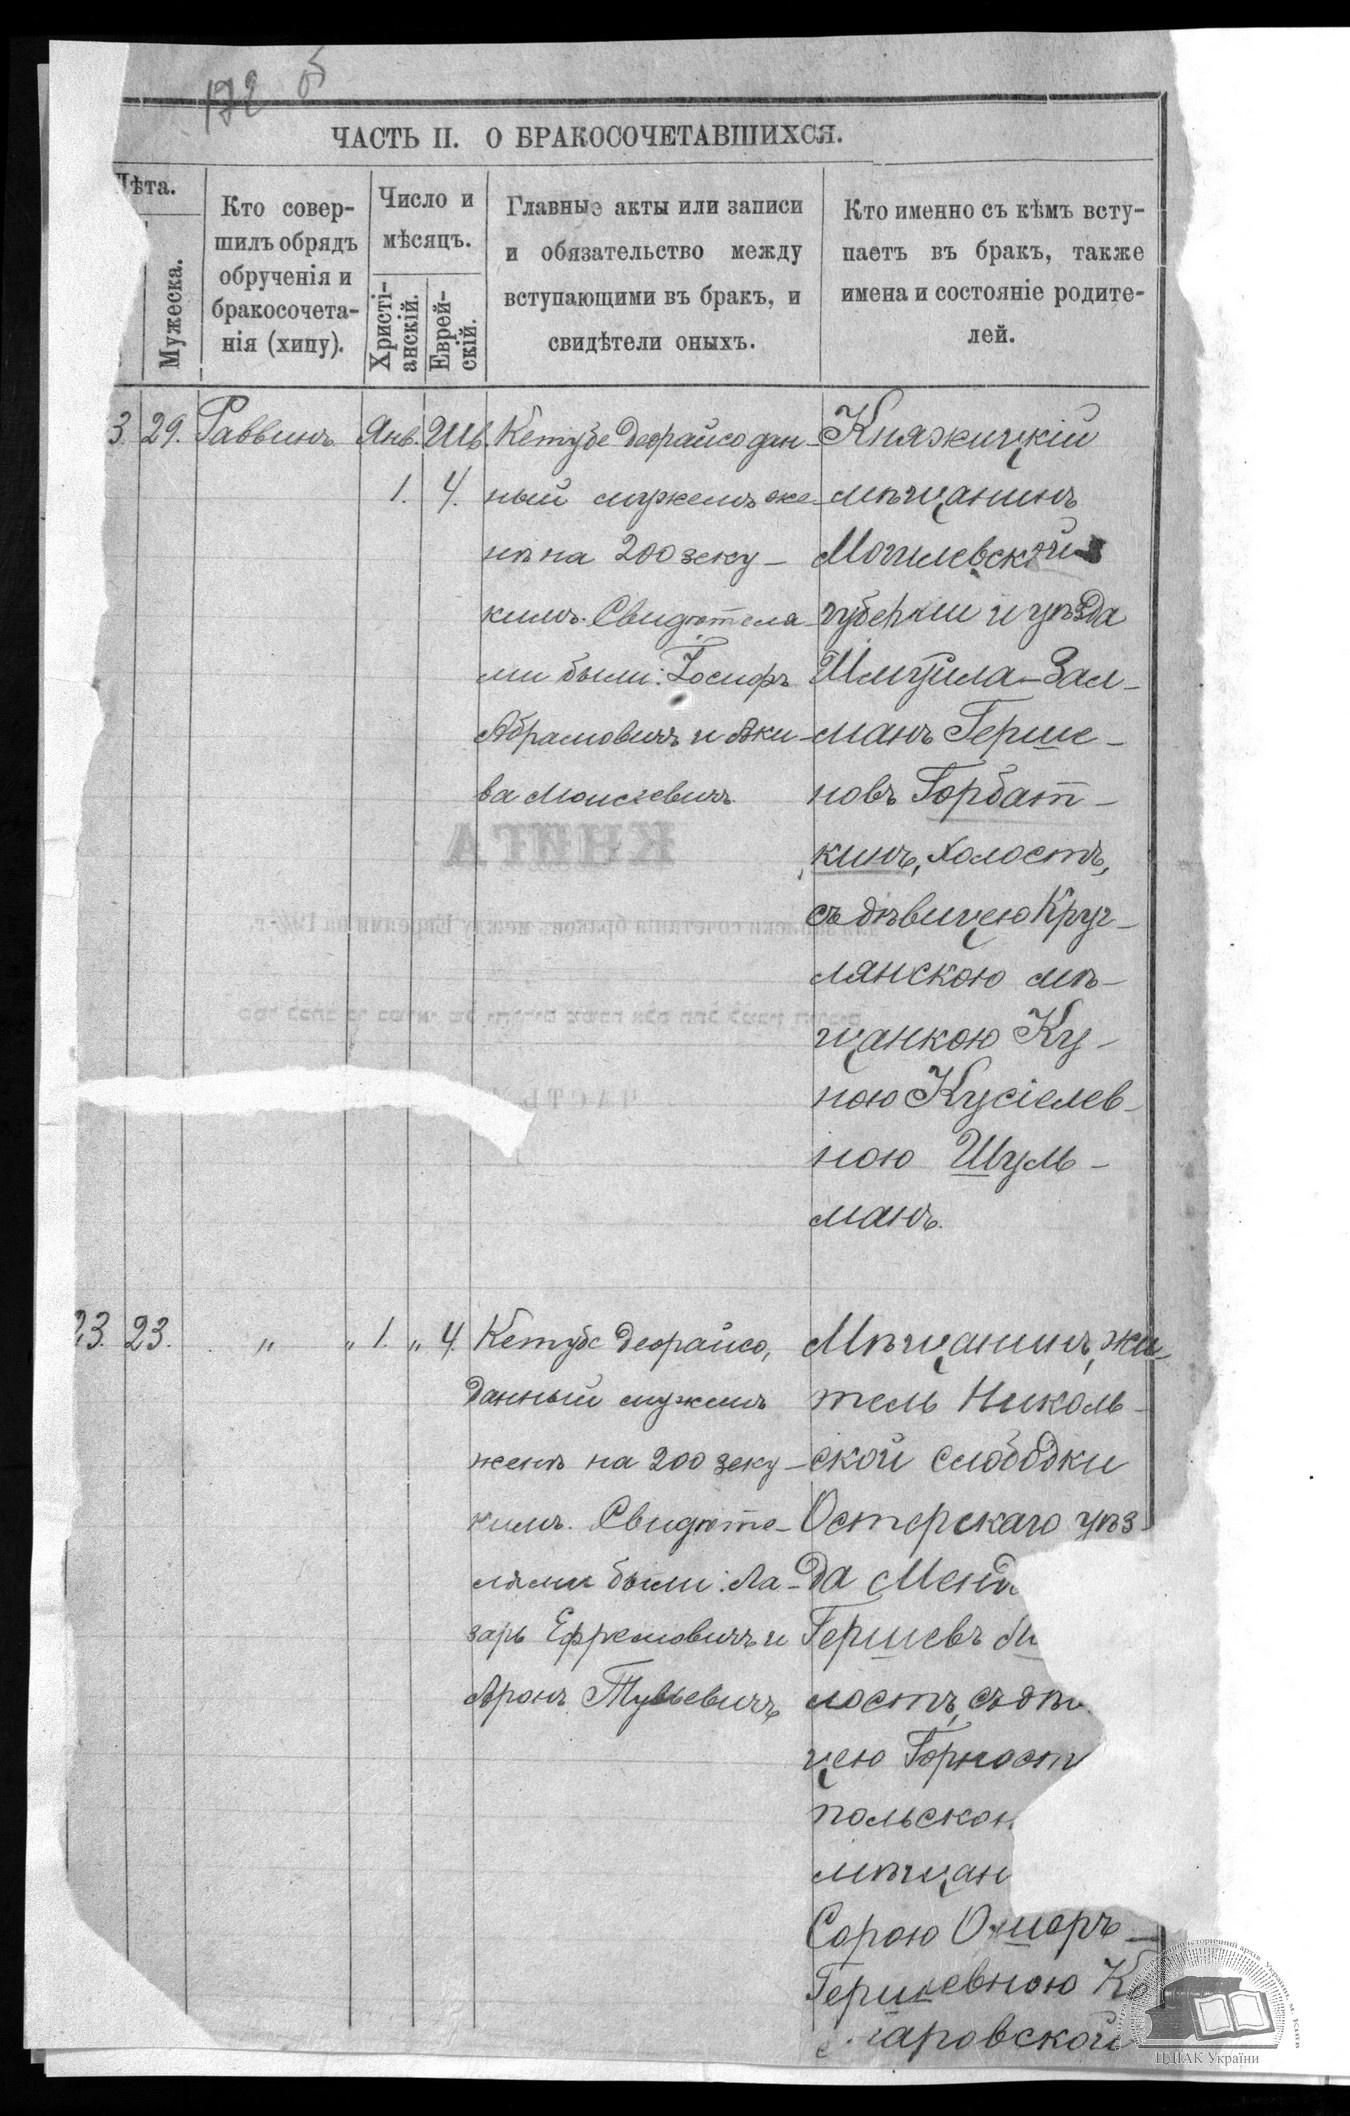 172 об
ЧАСТЬ II. О БРАКОСОЧЕТАВШИХСЯ.
Лѣта.
Мужеска.
Кто совер-
шилъ обрядъ
обрученія и
бракосочета-
нія (хипу).
Число и
мѣсяцъ.
Христі-
анскій.
Еврей-
скій.
Главные акты или записи
и обязательство между
вступающими въ бракъ, и
свидѣтели оныхъ.
Кто именно съ кѣмъ всту-
паетъ въ бракъ, также
имена и состояніе родите-
лей.
3. 29. Раввинъ Янв. Шв.
1. 4.
Кетубе деорайсо дан-
ный мужемъ же-
нѣ на 200 зеку-
кимъ. Свидѣтеля-
ми были: Іосифъ
Абрамовичъ и Аки-
ва Моисеевичъ.
Княжицкій
мѣщанинъ
Могилевской
губерніи и уѣзда
Шмуйла-Зал-
манъ Герше-
новъ Горбат-
кинъ, холостъ,
съ дѣвицею Круг-
лянскою мѣ-
щанкою Ку-
ною Кусіелев-
ною Шуль-
манъ.
КНИГА
для записки сочетанія браковъ между Евреями на
ЧАСТЬ
23. 23. " " 1. " 4.
Кетубе деорайсо,
данный мужемъ
женѣ на 200 зеку-
кимъ. Свидѣте-
лями были: Ла-
зарь Ефремовичъ и
Аронъ Тувьевичъ
Мѣщанинъ, жи-
тель Николь-
ской слободки
Остерскаго уѣз-
да Менд
Гершевъ
лостъ, съ дѣв
цею Горност
польскою
мѣщан
Сорою Ошеръ-
Гершевною Ко
маровской
ЦДІАК України